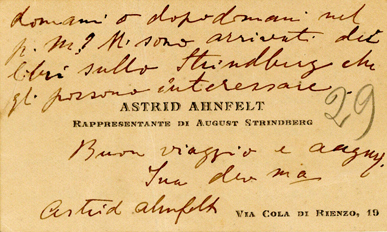 domani o dopodomani nel
p. m? Mi sono arrivati dei
libri sullo Strindberg che
gli possono interessare.
ASTRID AHNFELT
29
RAPPRESENTANTE DI AUGUST STRINDBERG
Buon viaggio e
Sua dev ma
Astrid Ahnfelt
VIA COLA DI RIENZO, 19